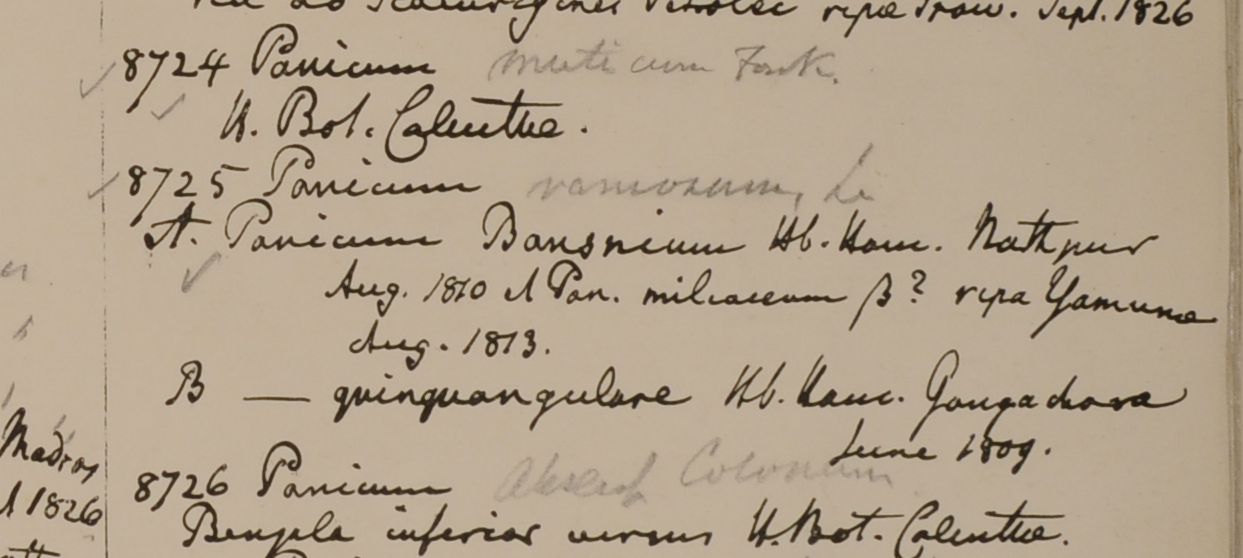 ripa Iraw. Sept. 1826
8724 Panicum muticum Forsk.
H. Bot. Calcuttae.
8725 Panicum ramosum, L.
A. Panicum Bansnium Hb. Ham. Nathpur
Aug. 1810 et Pan. miliaceum β? ripa Yamunae
Aug. 1813.
B — quinquangulare Hb. Ham. Gongachora
June 1809.
Madras
8726 Panicum absent Colonum
et 1826
Bengala inferior versus H. Bot. Calcuttae.